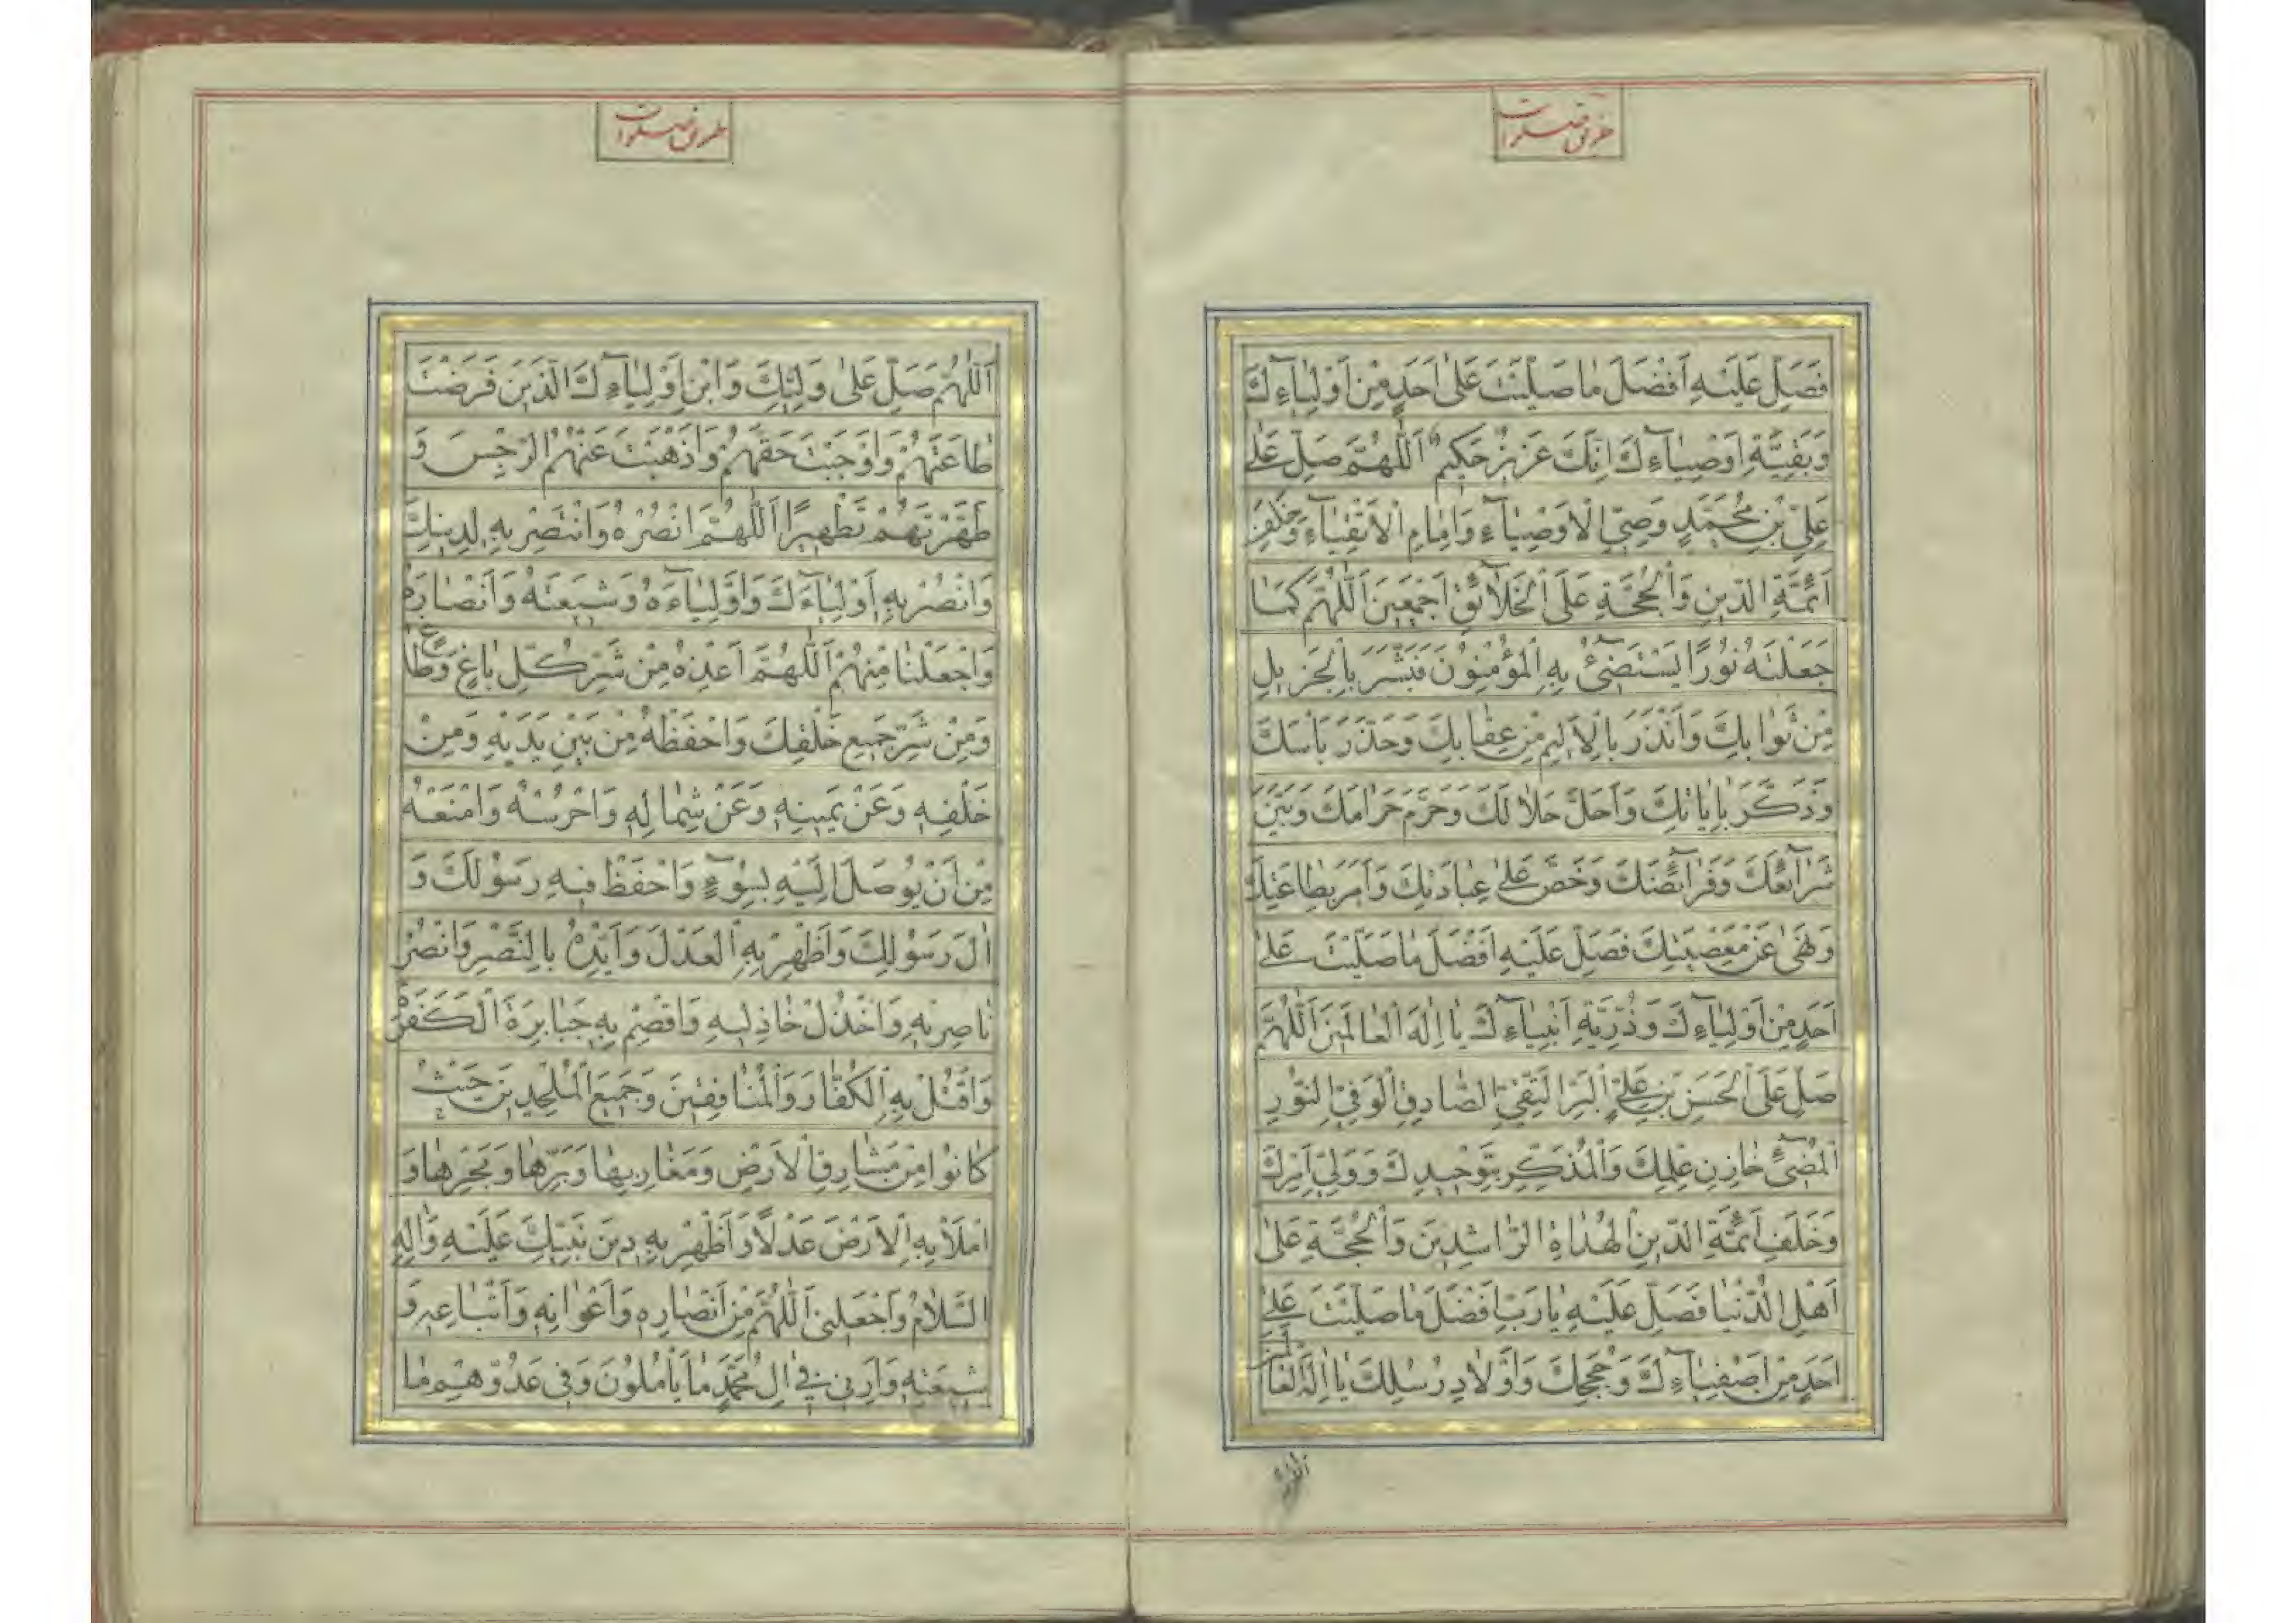 طریق صلوات
فَصَلِّ عَلَيْهِ اَفْضَلَ مٰا صَلَّيْتَ عَلىٰ اَحَدٍ مِنْ اَوْلِيٰآءِكَ
وَبَقِيَّةِ اَوْصِيٰآءِكَ اِنَّكَ عَزيزٌ حَكيمٌ اَللّٰهُمَّ صَلِّ عَلىٰ
عَلِيِّ بْنِ مُحَمَّدٍ وَصِيِّ الْاَوْصِيٰآءِ وَاِمٰامِ الْاَتْقِيٰآءِ وَخَلَفِ
اَئِمَّةِ الدّينِ وَالْحُجَّةِ عَلَى الْخَلٰآئِقِ اَجْمَعينَ اَللّٰهُمَّ كَمٰا
جَعَلْتَهُ نُورًا يَسْتَضيٓئُ بِهِ الْمُؤْمِنُونَ فَبَشَّرَ بِالْجَزيلِ
مِنْ ثَوٰابِكَ وَاَنْذَرَ بِالْاَليمِ مِنْ عِقٰابِكَ وَحَذَّرَ بَاْسَكَ
وَذَكَّرَ بِاٰيٰاتِكَ وَاَحَلَّ حَلٰالَكَ وَحَرَّمَ حَرٰامَكَ وَبَيَّنَ
شَرٰآئِعَكَ وَفَرٰآئِضَكَ وَحَضَّ عَلىٰ عِبٰادَتِكَ وَاَمَرَ بِطٰاعَتِكَ
وَنَهىٰ عَنْ مَعْصِيَتِكَ فَصَلِّ عَلَيْهِ اَفْضَلَ مٰا صَلَّيْتَ عَلىٰ
اَحَدٍ مِنْ اَوْلِيٰآءِكَ وَذُرِّيَّةِ اَنْبِيٰآءِكَ يٰا اِلٰهَ الْعٰالَمينَ اَللّٰهُمَّ
صَلِّ عَلَى الْحَسَنِ بْنِ عَلِيٍّ اَلْبَرِّ التَّقِيِّ الصّٰادِقِ الْوَفِيِّ النُّورِ
الْمُضيٓئِ خٰازِنِ عِلْمِكَ وَالْمُذَكِّرِ بِتَوْحيدِكَ وَوَلِيِّ اَمْرِكَ
وَخَلَفِ اَئِمَّةِ الدّينِ الْهُدٰاةِ الرّٰاشِدينَ وَالْحُجَّةِ عَلىٰ
اَهْلِ الدُّنْيٰا فَصَلِّ عَلَيْهِ يٰا رَبِّ اَفْضَلَ مٰا صَلَّيْتَ عَلىٰ
اَحَدٍ مِنْ اَصْفِيٰآءِكَ وَحُجَجِكَ وَاَوْلٰادِ رُسُلِكَ يٰا اِلٰهَ الْعٰالَمينَ
اَللّٰهُمَّ
طریق صلوات
اَللّٰهُمَّ صَلِّ عَلىٰ وَلِيِّكَ وَابْنِ اَوْلِيٰآءِكَ الَّذينَ فَرَضْتَ
طٰاعَتَهُمْ وَاَوْجَبْتَ حَقَّهُمْ وَاَذْهَبْتَ عَنْهُمُ الرِّجْسَ وَ
طَهَّرْتَهُمْ تَطْهيرًا اَللّٰهُمَّ انْصُرْهُ وَانْتَصِرْ بِهِ لِدينِكَ
وَانْصُرْ بِهِ اَوْلِيٰآءَكَ وَاَوْلِيٰآءَهُ وَشيعَتَهُ وَاَنْصٰارَهُ
وَاجْعَلْنٰا مِنْهُمْ اَللّٰهُمَّ اَعِذْهُ مِنْ شَرِّ كُلِّ بٰاغٍ وَطٰاغٍ
وَمِنْ شَرِّ جَميعِ خَلْقِكَ وَاحْفَظْهُ مِنْ بَيْنِ يَدَيْهِ وَمِنْ
خَلْفِهِ وَعَنْ يَمينِهِ وَعَنْ شِمٰالِهِ وَاحْرُسْهُ وَامْنَعْهُ
مِنْ اَنْ يُوصَلَ اِلَيْهِ بِسُوٓءٍ وَاحْفَظْ فيهِ رَسُولَكَ وَ
اٰلَ رَسُولِكَ وَاَظْهِرْ بِهِ الْعَدْلَ وَاَيِّدْهُ بِالنَّصْرِ وَانْصُرْ
نٰاصِريهِ وَاخْذُلْ خٰاذِليهِ وَاقْصِمْ بِهِ جَبٰابِرَةَ الْكَفَرَةِ
وَاقْتُلْ بِهِ الْكُفّٰارَ وَالْمُنٰافِقينَ وَجَميعَ الْمُلْحِدينَ حَيْثُ
كٰانُوا مِنْ مَشٰارِقِ الْاَرْضِ وَمَغٰارِبِهٰا وَبَرِّهٰا وَبَحْرِهٰا وَ
امْلَأْ بِهِ الْاَرْضَ عَدْلًا وَاَظْهِرْ بِهِ دينَ نَبِيِّكَ عَلَيْهِ وَاٰلِهِ
السَّلٰامُ وَاجْعَلْنى اَللّٰهُمَّ مِنْ اَنْصٰارِهِ وَاَعْوٰانِهِ وَاَتْبٰاعِهِ وَ
شيعَتِهِ وَاَرِنى فى اٰلِ مُحَمَّدٍ مٰا يَأْمُلُونَ وَفى عَدُوِّهِمْ مٰا